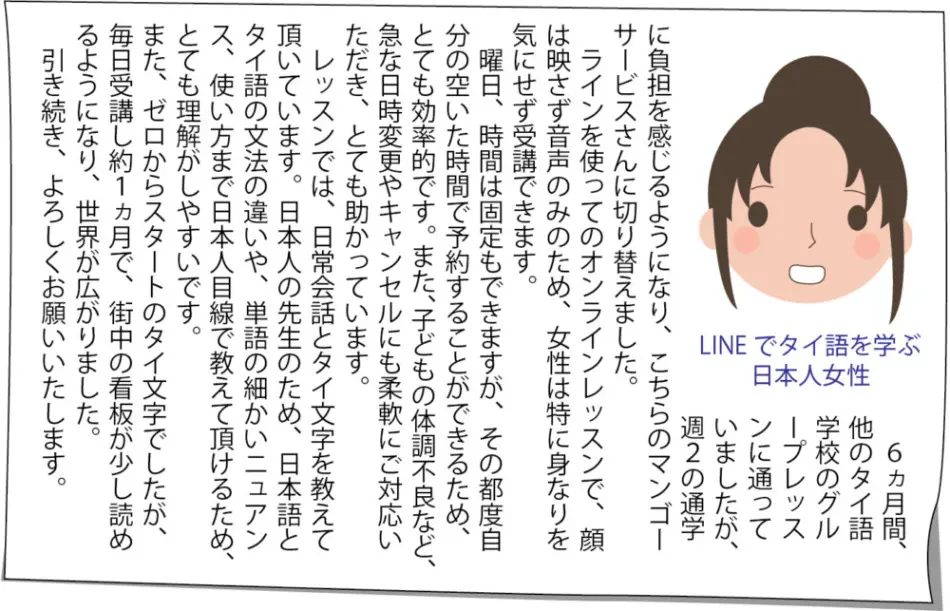 LINEでタイ語を学ぶ
日本人女性
６ヵ月間、
他のタイ語
学校のグル
ープレッス
ンに通って
いましたが、
週２の通学
に負担を感じるようになり、こちらのマンゴー
サービスさんに切り替えました。
ラインを使ってのオンラインレッスンで、顔
は映さず音声のみのため、女性は特に身なりを
気にせず受講できます。
曜日、時間は固定もできますが、その都度自
分の空いた時間で予約することができるため、
とても効率的です。また、子どもの体調不良など、
急な日時変更やキャンセルにも柔軟にご対応い
ただき、とても助かっています。
レッスンでは、日常会話とタイ文字を教えて
頂いています。日本人の先生のため、日本語と
タイ語の文法の違いや、単語の細かいニュアン
ス、使い方まで日本人目線で教えて頂けるため、
とても理解がしやすいです。
また、ゼロからスタートのタイ文字でしたが、
毎日受講し約１ヵ月で、街中の看板が少し読め
るようになり、世界が広がりました。
引き続き、よろしくお願いいたします。